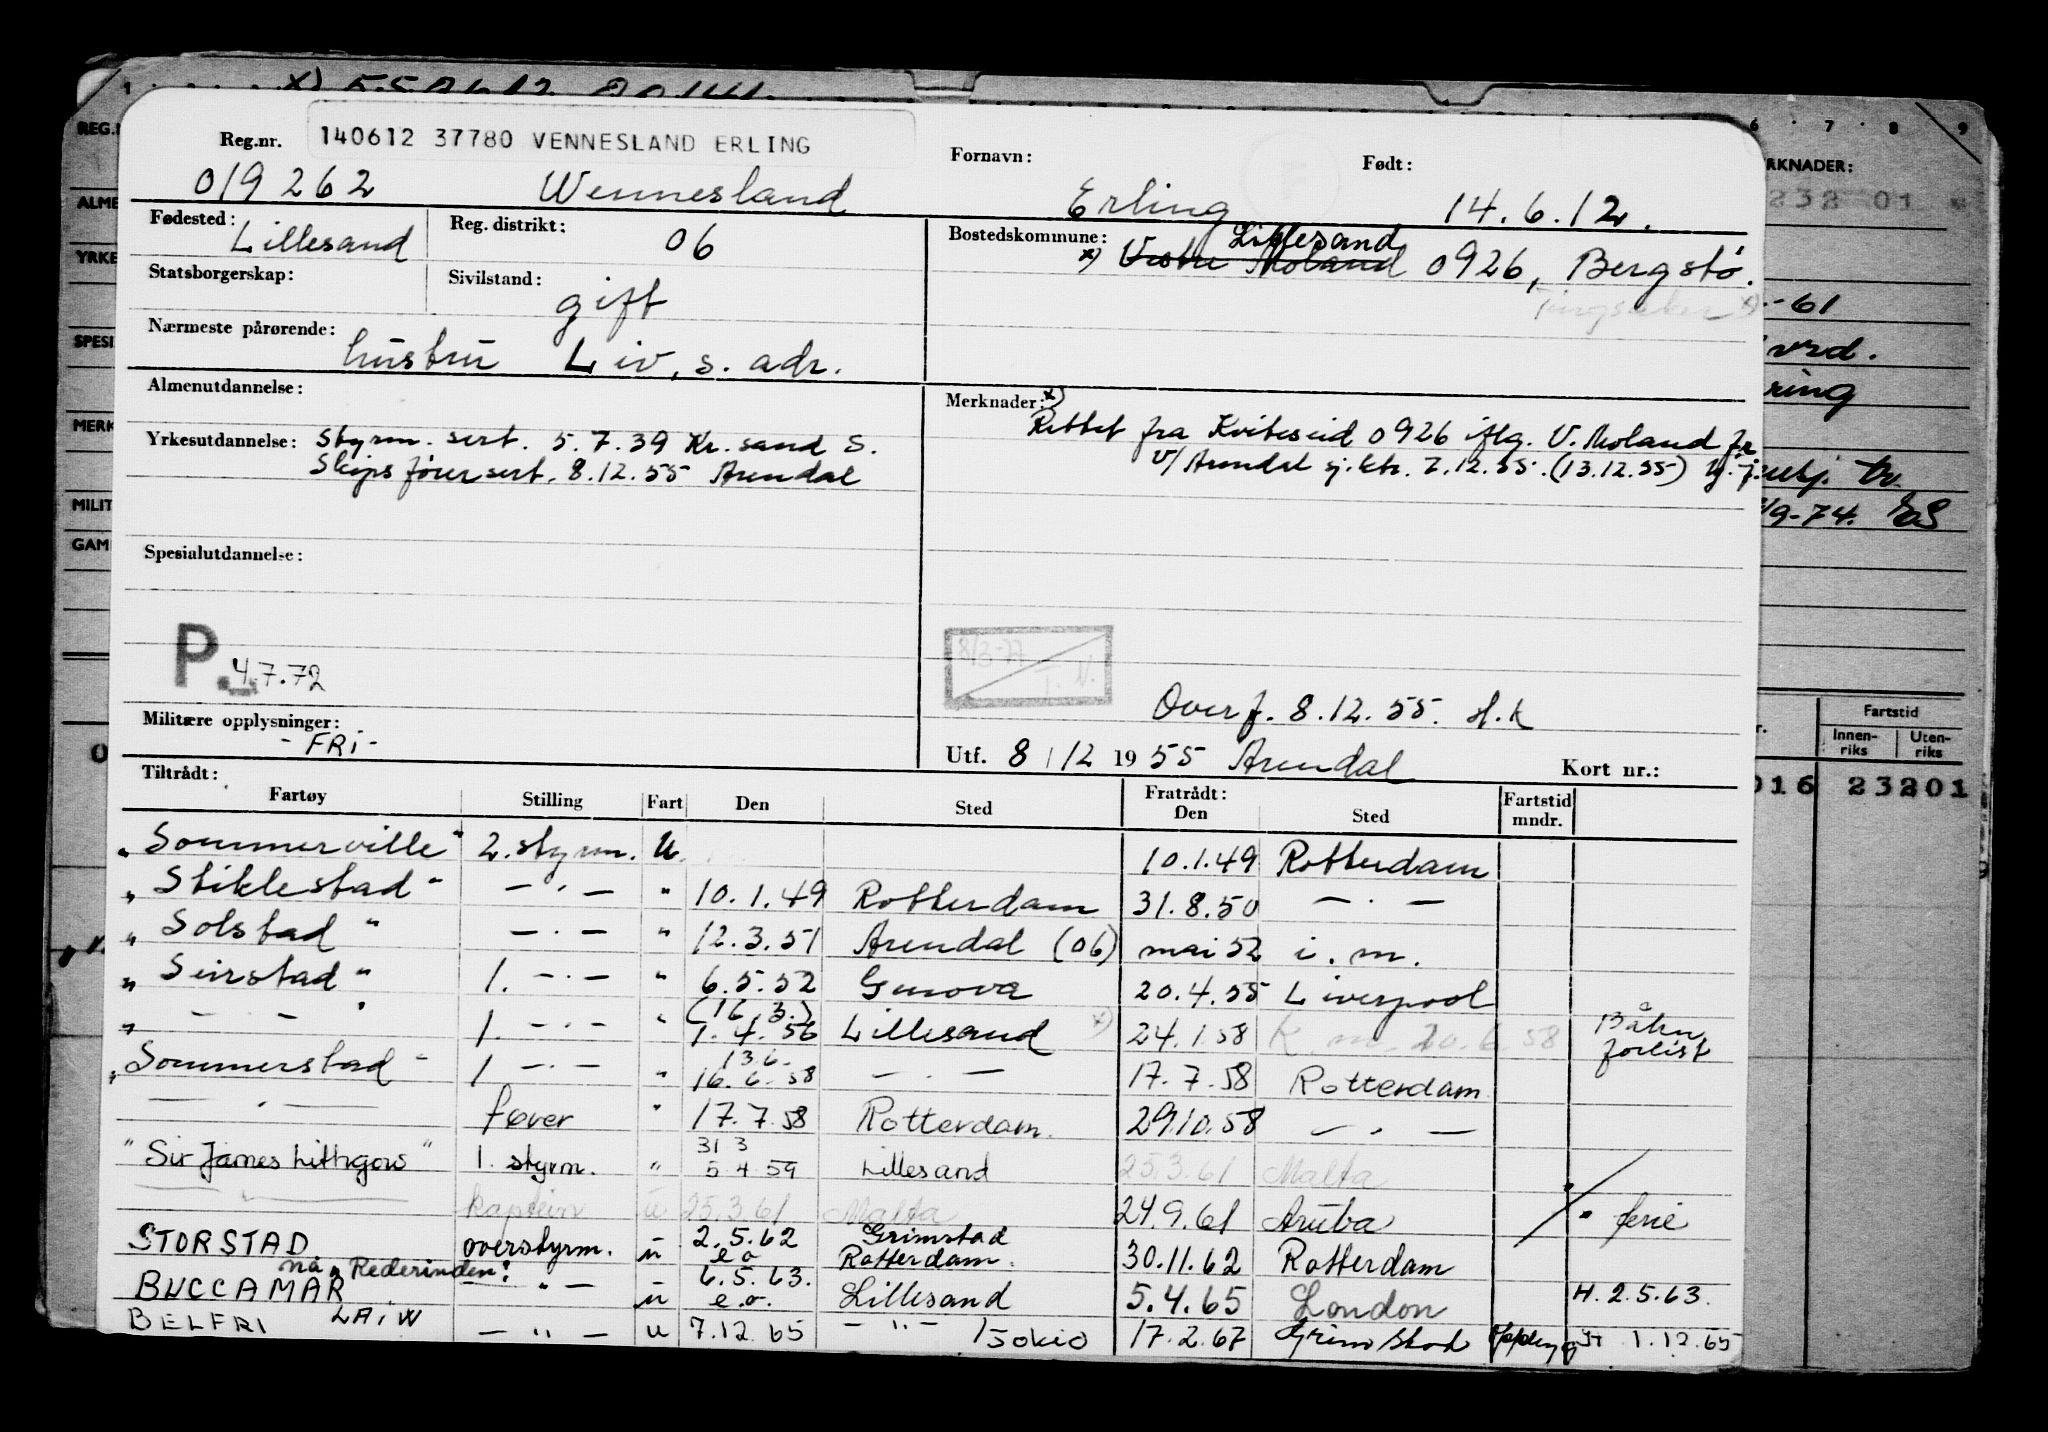 Reg.nr. 140612 37780 VENNESLAND ERLING Fornavn: Født:
019262 Wennesland Erling 14.6.12.
Fødested: Lillesand Reg. distrikt: 06 Bostedskommune: Lillesand
x) Vestre Moland 0926, Bergstø.
Statsborgerskap: Sivilstand: gift
Nærmeste pårørende: hustru Liv, s. adr.
Almenutdannelse: Merknader: x)
Rettet fra Kviteseid 0926 iflg. V. Moland
Yrkesutdannelse: Styrm. sert. 5.7.39 Kr.sand S.
v/ Arendal sj.ktr. 7.12.55. (13.12.55)
Skipsførersert. 8.12.55 Arendal
Spesialutdannelse:
P. 4.7.72
8/3-77
Overf. 8.12.55. H.K
Militære opplysninger: -FRI-
Utf. 8/12 1955 Arendal Kort nr.:
Tiltrådt: Fratrådt:
Fartøy Stilling Fart Den Sted Den Sted Fartstid mndr.
"Sommerville" 2. styrm. U. 10.1.49 Rotterdam
"Stiklestad" — · — " 10.1.49 Rotterdam 31.8.50 — · —
"Solstad" — · — " 12.3.51 Arendal (06) mai 52 i.m.
"Seirstad" 1. — · — " 6.5.52 Genova 20.4.55 Liverpool
" — · — " 1. — · — " (16 3.) 1.4.56 Lillesand x) 24.1.58 20.6.58 forlist
"Sommerstad" 1 — · — " 13 6. 16.6.58 — · — 17.7.58 Rotterdam
— · — fører " 17.7.58 Rotterdam. 29.10.58 — · —
"Sir James Lithgow" 1. styrm. " 31 3 5 4 59 Lillesand 25.3.61 Malta
kaptein u 25.3.61 Malta 24.9.61 Aruba " ferie
STORSTAD overstyrm. u 2.5.62 e.o Grimstad Rotterdam. 30.11.62 Rotterdam
nå "Rederinden"
BUCCAMAR — " — u 6.5.63. e.o. Lillesand 5.4.65 London H. 2.5.63.
BELFRI LAIW — " — u 7.12.65 — " — 17.2.67 Grimstad 1.12.65
REG.
ALME
YRKE
SPESI
MERK
MILIT
GAM
6 7 8 9
RKNADER:
232 01
-61
vrd.
ring
/9-74. ES
Fartstid
Innen-riks Uten-riks
016 23201